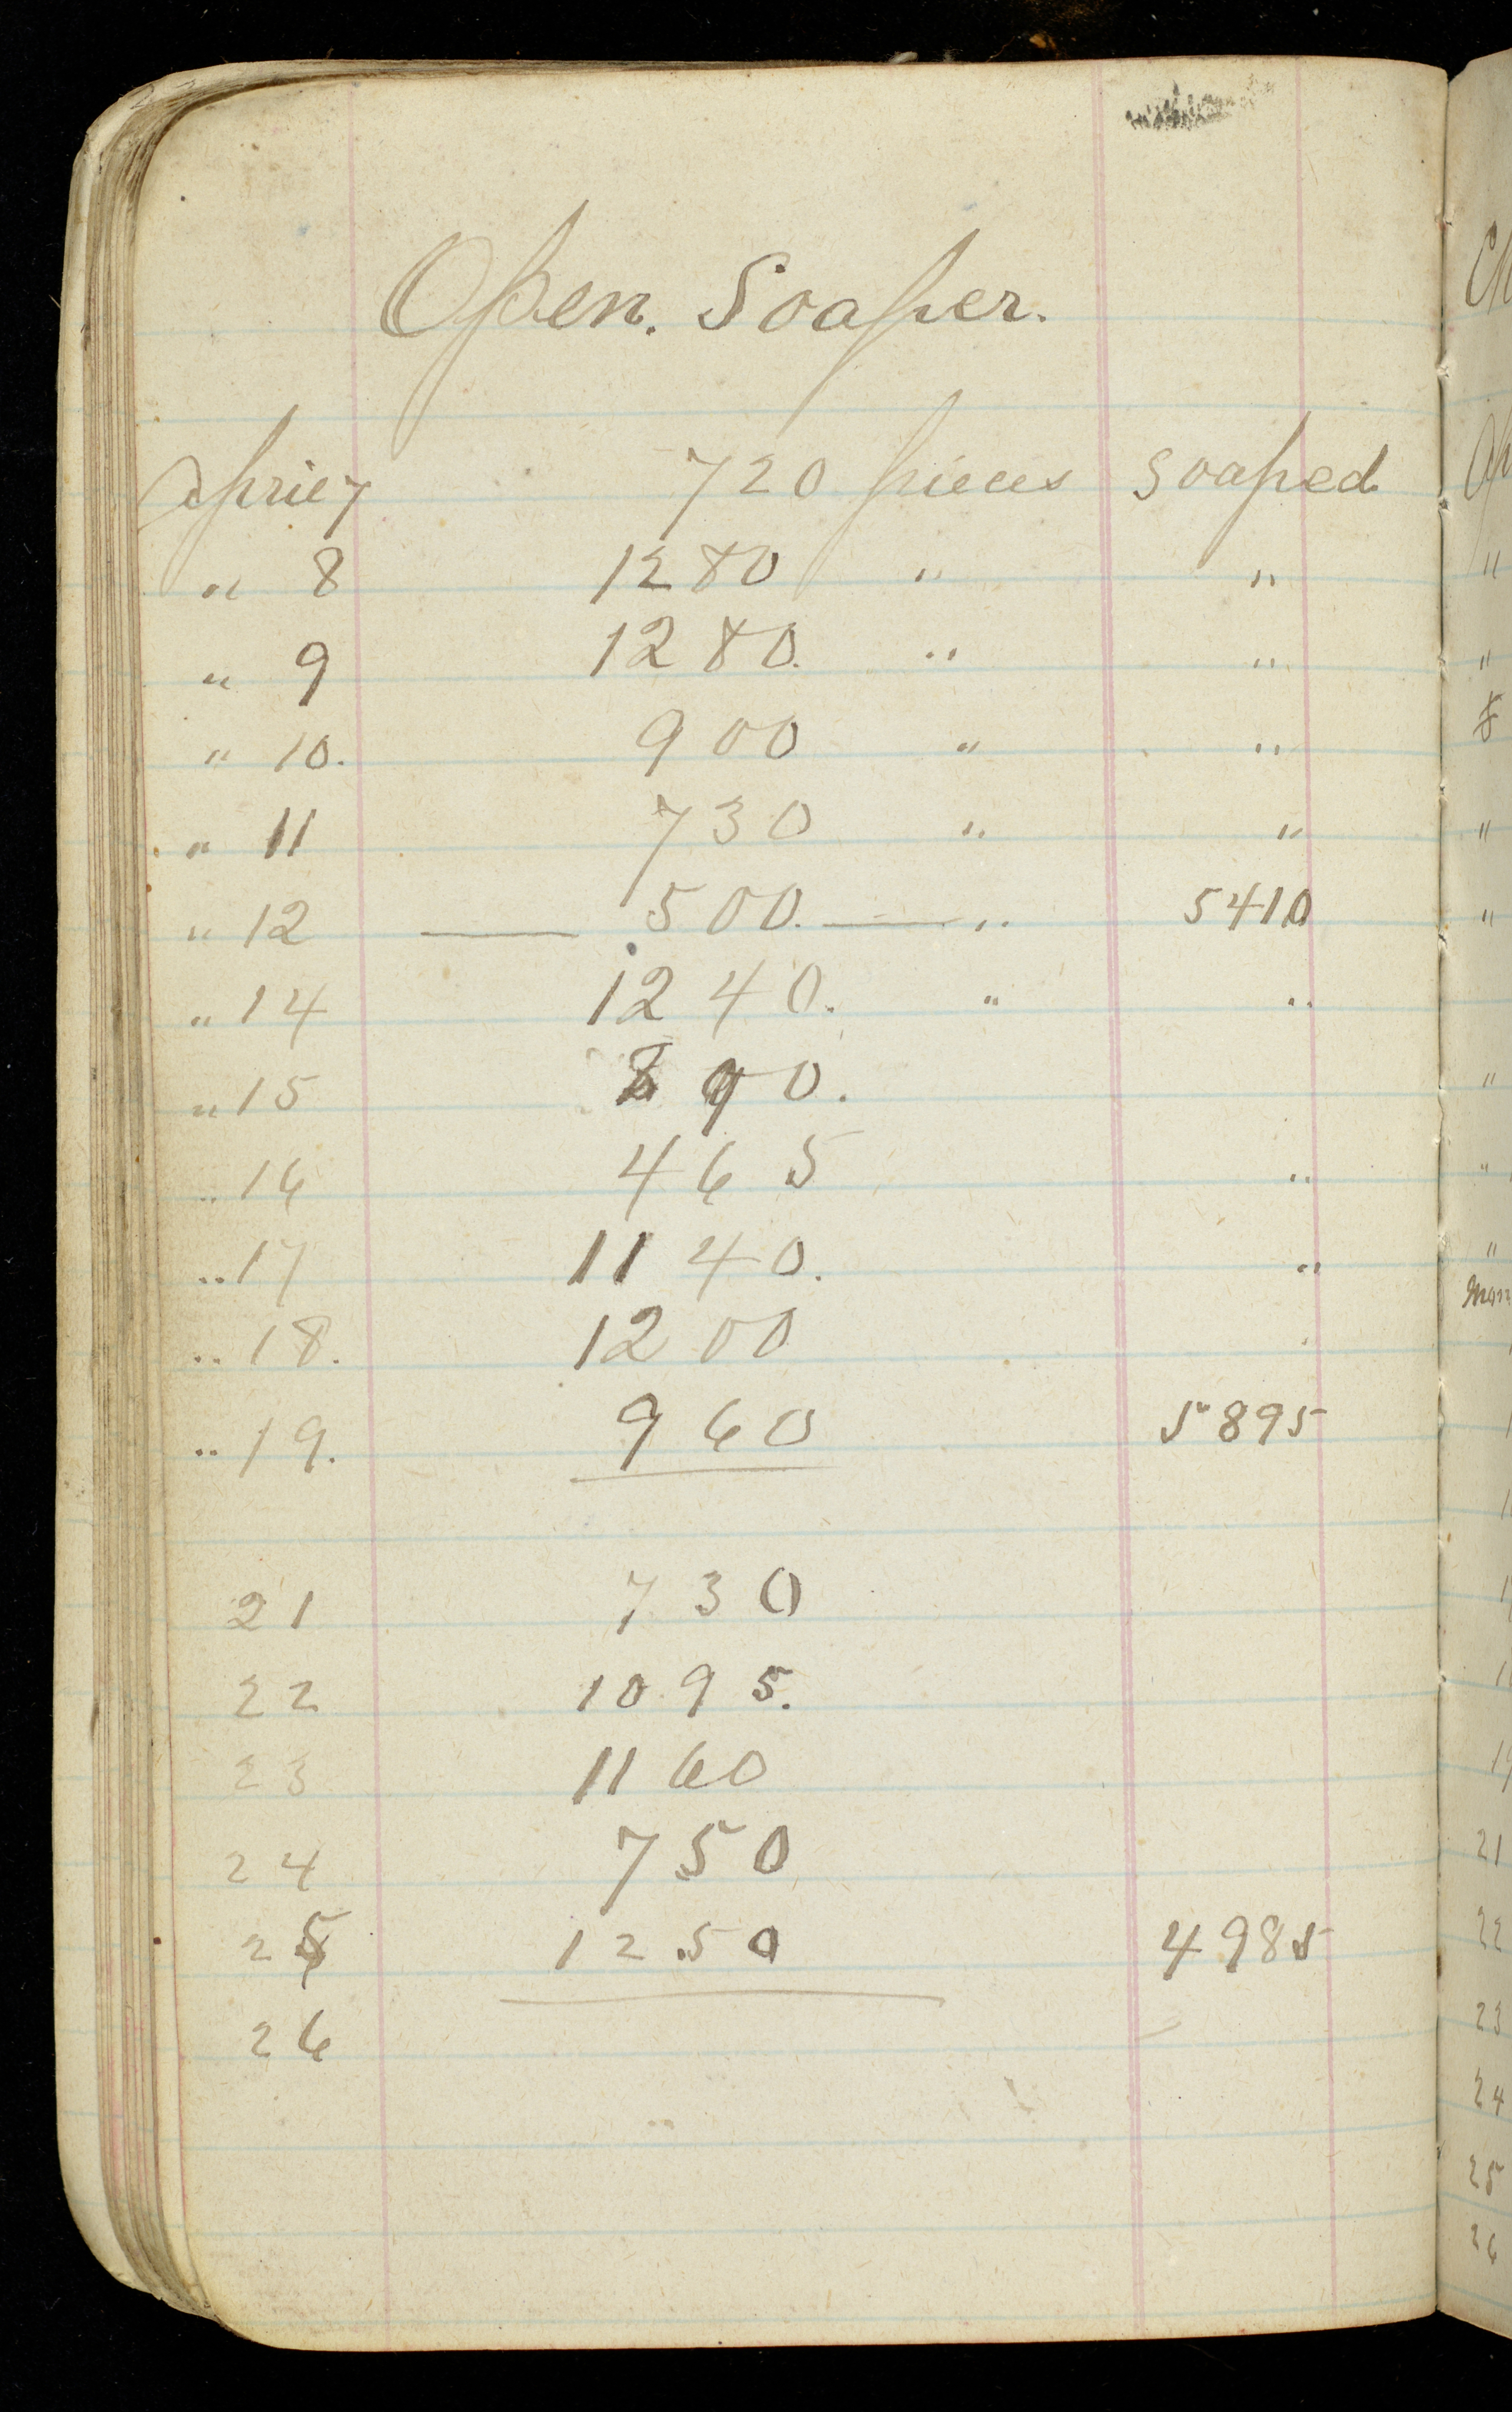 Open. Soaper.
April 7 720 pieces soaped
" 8 1280 " "
" 9 1280. " "
" 10. 900 " "
" 11 730 " "
" 12 — 500. — " 5410
" 14 1240. " "
" 15 890.
" 16 465 "
" 17 1140. "
" 18. 1200
" 19. 960 5895
21 730
22 1095.
23 1160
24 750
25 1250 4985
26
21
22
23
24
25
26